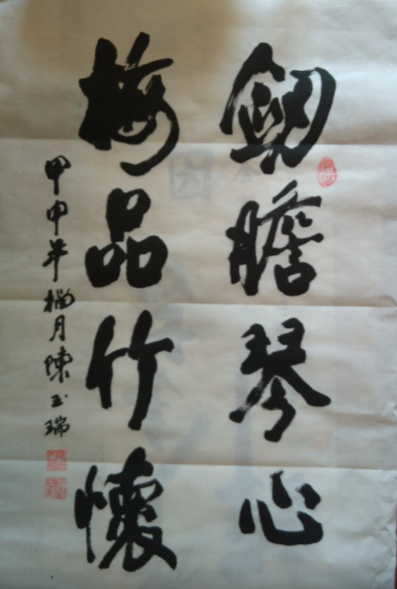 劒膽琴心
梅品竹懷
甲申年榴月陳玉瑞